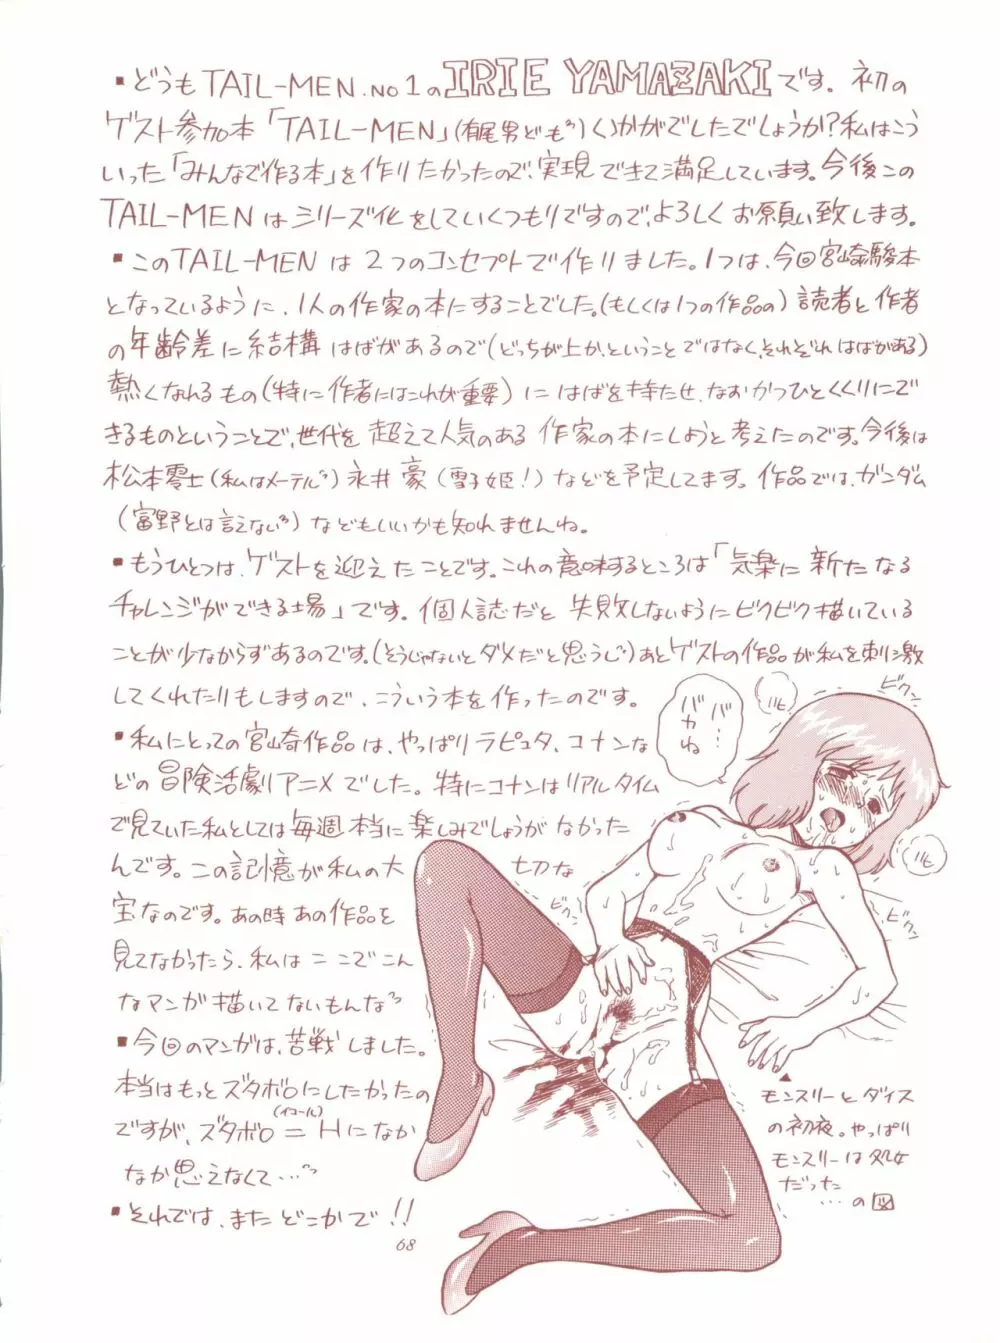 ▪どうもTAIL-MEN.NO1のIRIE YAMAZAKIです。初の
ゲスト参加本「TAIL-MEN」(有尾男ども)いかがでしたでしょうか?私はこう
いった「みんなで作る本」を作りたかったので、実現できて満足しています。今後この
TAIL-MENはシリーズ化をしていくつもりですので、よろしくお願い致します。
▪このTAIL-MENは2つのコンセプトで作りました。1つは、今回宮崎駿本
となっているように、1人の作家の本にすることでした。(もしくは1つの作品の)読者と作者
の年齢差に結構はばがあるので(どっちが上か、ということではなく、それぞれはばがある)
熱くなれるもの(特に作者にはこれが重要)にはばを持たせ、なおかつひとくくりにで
きるものということで、世代を超えて人気のある作家の本にしようと考えたのです。今後は
松本零士(私はメーテル)永井豪(雪子姫!)などを予定してます。作品では、ガンダム
(富野とは言えない)などもいいかも知れませんね。
▪もうひとつは、ゲストを迎えたことです。これの意味するところは「気楽に新たなる
チャレンジができる場」です。個人誌だと失敗しないようにビクビク描いている
ことが少なからずあるのです。(そうじゃないとダメだと思うし)あとゲストの作品が私を刺激
してくれたりもしますので、こういう本を作ったのです。
▪私にとっての宮崎作品は、やっぱりラピュタ、コナンな
どの冒険活劇アニメでした。特にコナンはリアルタイム
で見ていた私としては毎週本当に楽しみでしょうがなかった
んです。この記憶が私の大切な
宝なのです。あの時あの作品を
見てなかったら、私はここでこん
なマンガ描いてないもんな
▪今回のマンガは、苦戦しました。
本当はもっとズタボロにしたかったの
ですが、ズタボロ=(イコール)Hになか
なか思えなくて…
▪それでは、またどこかで!!
68
バ…バカね
ビクン
ビクン
ビクン
モンスリーとダイス
の初夜。やっぱり
モンスリーは処女
だった
…の図